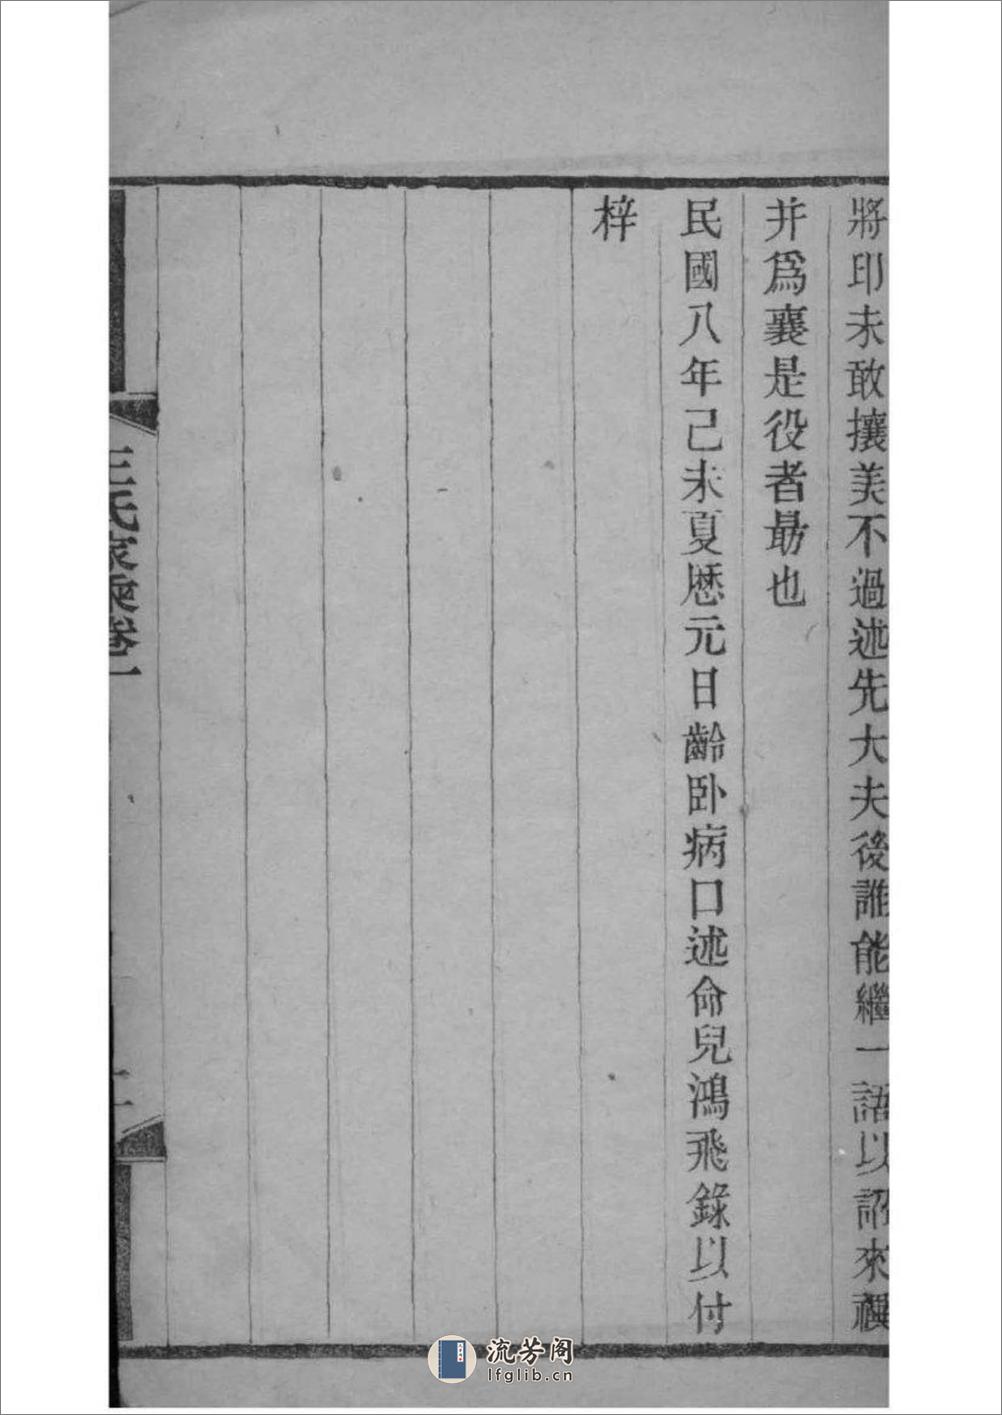 將印未敢攘美不過述先大夫後誰能繼一語以詔來禩
并爲襄是役者勗也
民國八年己未夏厯元日齡卧病口述命兒鴻飛錄以付
梓
王氏家乘卷一
流芳阁
lfglib.cn